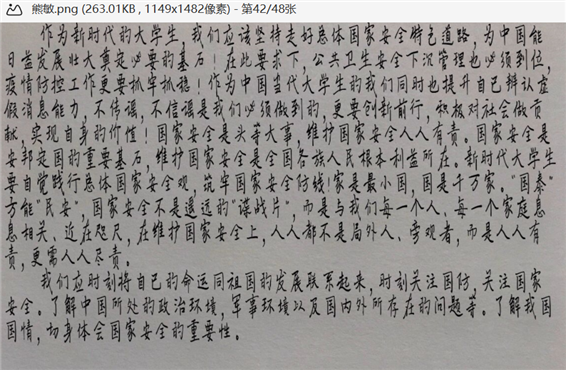 熊敏.png (263.01KB , 1149x1482像素) - 第42/48张
作为新时代的大学生，我们应该坚持走好总体国家安全特色道路，为中国能
日益发展壮大奠定必要的基石！在此要求下，公共卫生安全下沉管理也必须到位，
疫情防控工作更要抓牢抓稳！作为中国当代大学生的我们同时也提升自己辩认虚
假消息能力，不传谣，不信谣是我们必须做到的，更要创新前行，积极对社会做贡
献，实现自身的价值！国家安全是头等大事，维护国家安全人人有责。国家安全是
安邦定国的重要基石，维护国家安全是全国各族人民根本利益所在。新时代大学生
要自觉践行总体国家安全观，筑牢国家安全防线！家是最小国，国是千万家。"国泰"
方能"民安"，国家安全不是遥远的"谍战片"，而是与我们每一个人、每一个家庭息
息相关、近在咫尺，在维护国家安全上，人人都不是局外人、旁观者，而是人人有
责，更需人人尽责。
我们应时刻将自己的命运同祖国的发展联系起来，时刻关注国防，关注国家
安全。了解中国所处的政治环境，军事环境以及国内外所存在的问题等。了解我国
国情，切身体会国家安全的重要性。